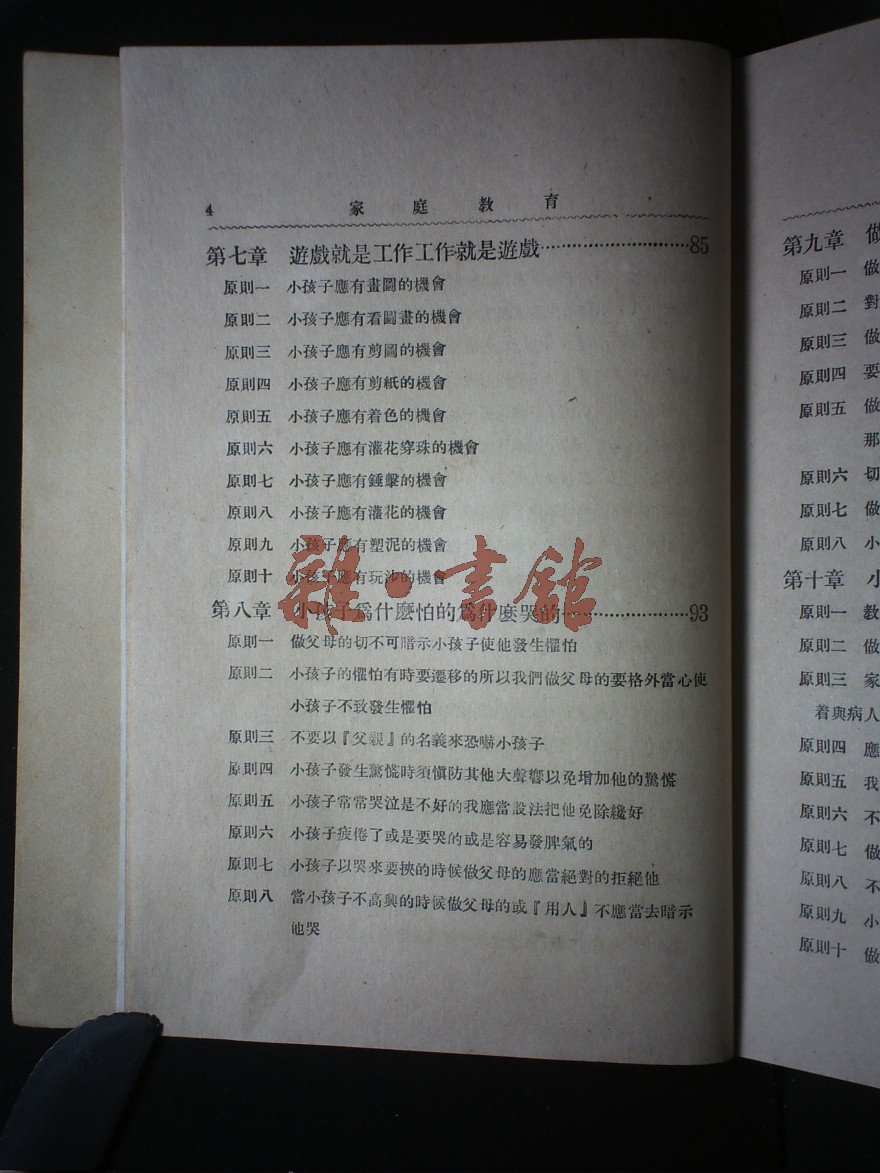 4 家庭教育
第七章 遊戲就是工作工作就是遊戲…………………………85
原則一 小孩子應有畫圖的機會
原則二 小孩子應有看圖畫的機會
原則三 小孩子應有剪圖的機會
原則四 小孩子應有剪紙的機會
原則五 小孩子應有着色的機會
原則六 小孩子應有灌花穿珠的機會
原則七 小孩子應有錘擊的機會
原則八 小孩子應有灌花的機會
原則九 小孩子應有塑泥的機會
原則十 小孩子應有玩沙的機會
第八章 小孩子爲什麽怕的爲什麽哭的……………………93
原則一 做父母的切不可暗示小孩子使他發生懼怕
原則二 小孩子的懼怕有時要遷移的所以我們做父母的要格外當心使
小孩子不致發生懼怕
原則三 不要以『父親』的名義來恐嚇小孩子
原則四 小孩子發生驚慌時須慎防其他大聲響以免增加他的驚慌
原則五 小孩子常常哭泣是不好的我應當設法把他免除纔好
原則六 小孩子疲倦了或是要哭的或是容易發脾氣的
原則七 小孩子以哭來要挾的時候做父母的應當絕對的拒絕他
原則八 當小孩子不高興的時候做父母的或『用人』不應當去暗示
他哭
雜·書館
第九章 做
原則一 做
原則二 對
原則三 做
原則四 要
原則五 做
那
原則六 切
原則七 做
原則八 小
第十章 小
原則一 教
原則二 做
原則三 家
着與病人
原則四 應
原則五 我
原則六 不
原則七 做
原則八 不
原則九 小
原則十 做